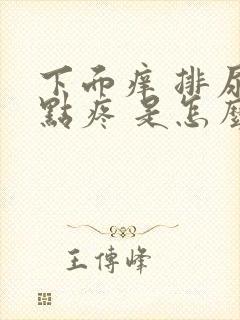 下而痒 排尿
點疼 是怎麼
王傳峰